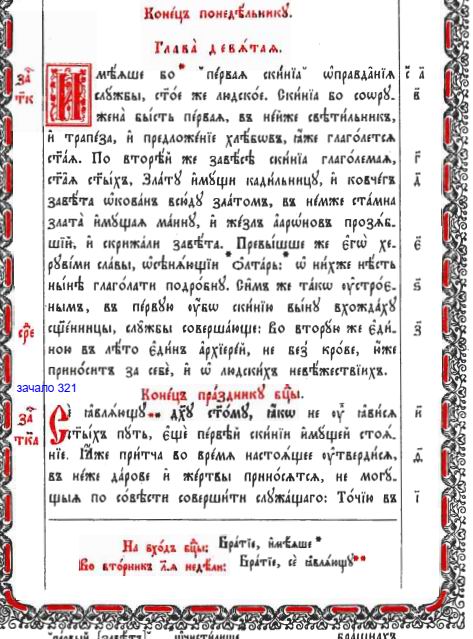 Коне́цъ понедѣ́льнику.
Глава̀ девѧ́таѧ.
за҃ тк҃ И҆мѣ́ѧше бо * "пе́рваѧ ски́нїа" ѡ҆правда̑нїѧ а҃
слꙋ́жбы, ст҃о́е же людско́е. Ски́нїа бо соѡрꙋ- в҃
жена̀ бы́сть пе́рваѧ, въ не́йже свѣти́льникъ,
и҆ трапе́за, и҆ предложе́нїе хлѣ́бѡвъ, ꙗ҆́же глаго́летсѧ
ст҃а́ѧ. По вторѣ́й же завѣ́сѣ ски́нїа глаго́лемаѧ, г҃
ст҃а́ѧ ст҃ы́хъ, Зла́тꙋ и҆мꙋ́щи кади́льницꙋ, и҆ ковче́гъ д҃
завѣ́та ѡ҆ко́ванъ всю́дꙋ зла́томъ, въ не́мже ста́мна
злата̀ и҆мꙋ́щаѧ ма́ннꙋ, и҆ же́злъ а҆арѡ́новъ прозѧ́б-
шїй, и҆ скрижа̑ли завѣ́та. Превы́шше же є҆гѡ̀ хе- є҃
рꙋві́ми сла́вы, ѡ҆сѣнѧ́ющїи * ѻ҆лта́рь: ѡ҆ ни́хже нѣ́сть
ны́нѣ глаго́лати подро́бнꙋ. Си̑мъ же та́кѡ ᲂу҆стро́є- ѕ҃
нымъ, въ пе́рвꙋю ᲂу҆́бѡ ски́нїю вы́нꙋ вхожда́хꙋ
сре҃ сщ҃е́нницы, слꙋ́жбы соверша́юще: Во вторꙋ́ю же є҆ди́- з҃
ною въ лѣ́то є҆ди́нъ а҆рхїере́й, не без̾ кро́ве, ю҆́же
прино́ситъ за себѐ, и҆ ѡ҆ людски́хъ невѣ́жествїихъ.
зачало 321
Коне́цъ пра́здникꙋ бц҃ы.
за҃ тка҃ Сѐ ꙗ҆влѧ́ющꙋ ** дх҃ꙋ ст҃о́мꙋ, ꙗ҆́кѡ не ᲂу҆̀ ꙗ҆ви́сѧ и҃
ст҃ы́хъ пꙋ́ть, є҆щѐ пе́рвѣй ски́нїи и҆мꙋ́щей стоѧ́-
нїе. Ꙗ҆́же при́тча во вре́мѧ настоѧ́щее ᲂу҆тверди́сѧ, ѳ҃
въ не́же да́рове и҆ жє́ртвы прино́сѧтсѧ, не могꙋ́-
щыѧ по со́вѣсти соверши́ти слꙋжа́щаго: То́чїю въ і҃
На вхо́дъ бц҃ы: Бра́тїе, и҆мѣ́ѧше *
Во вто́рникъ л҃ѧ недѣ́ли: Бра́тїе, сѐ ꙗ҆влѧ́ющꙋ **